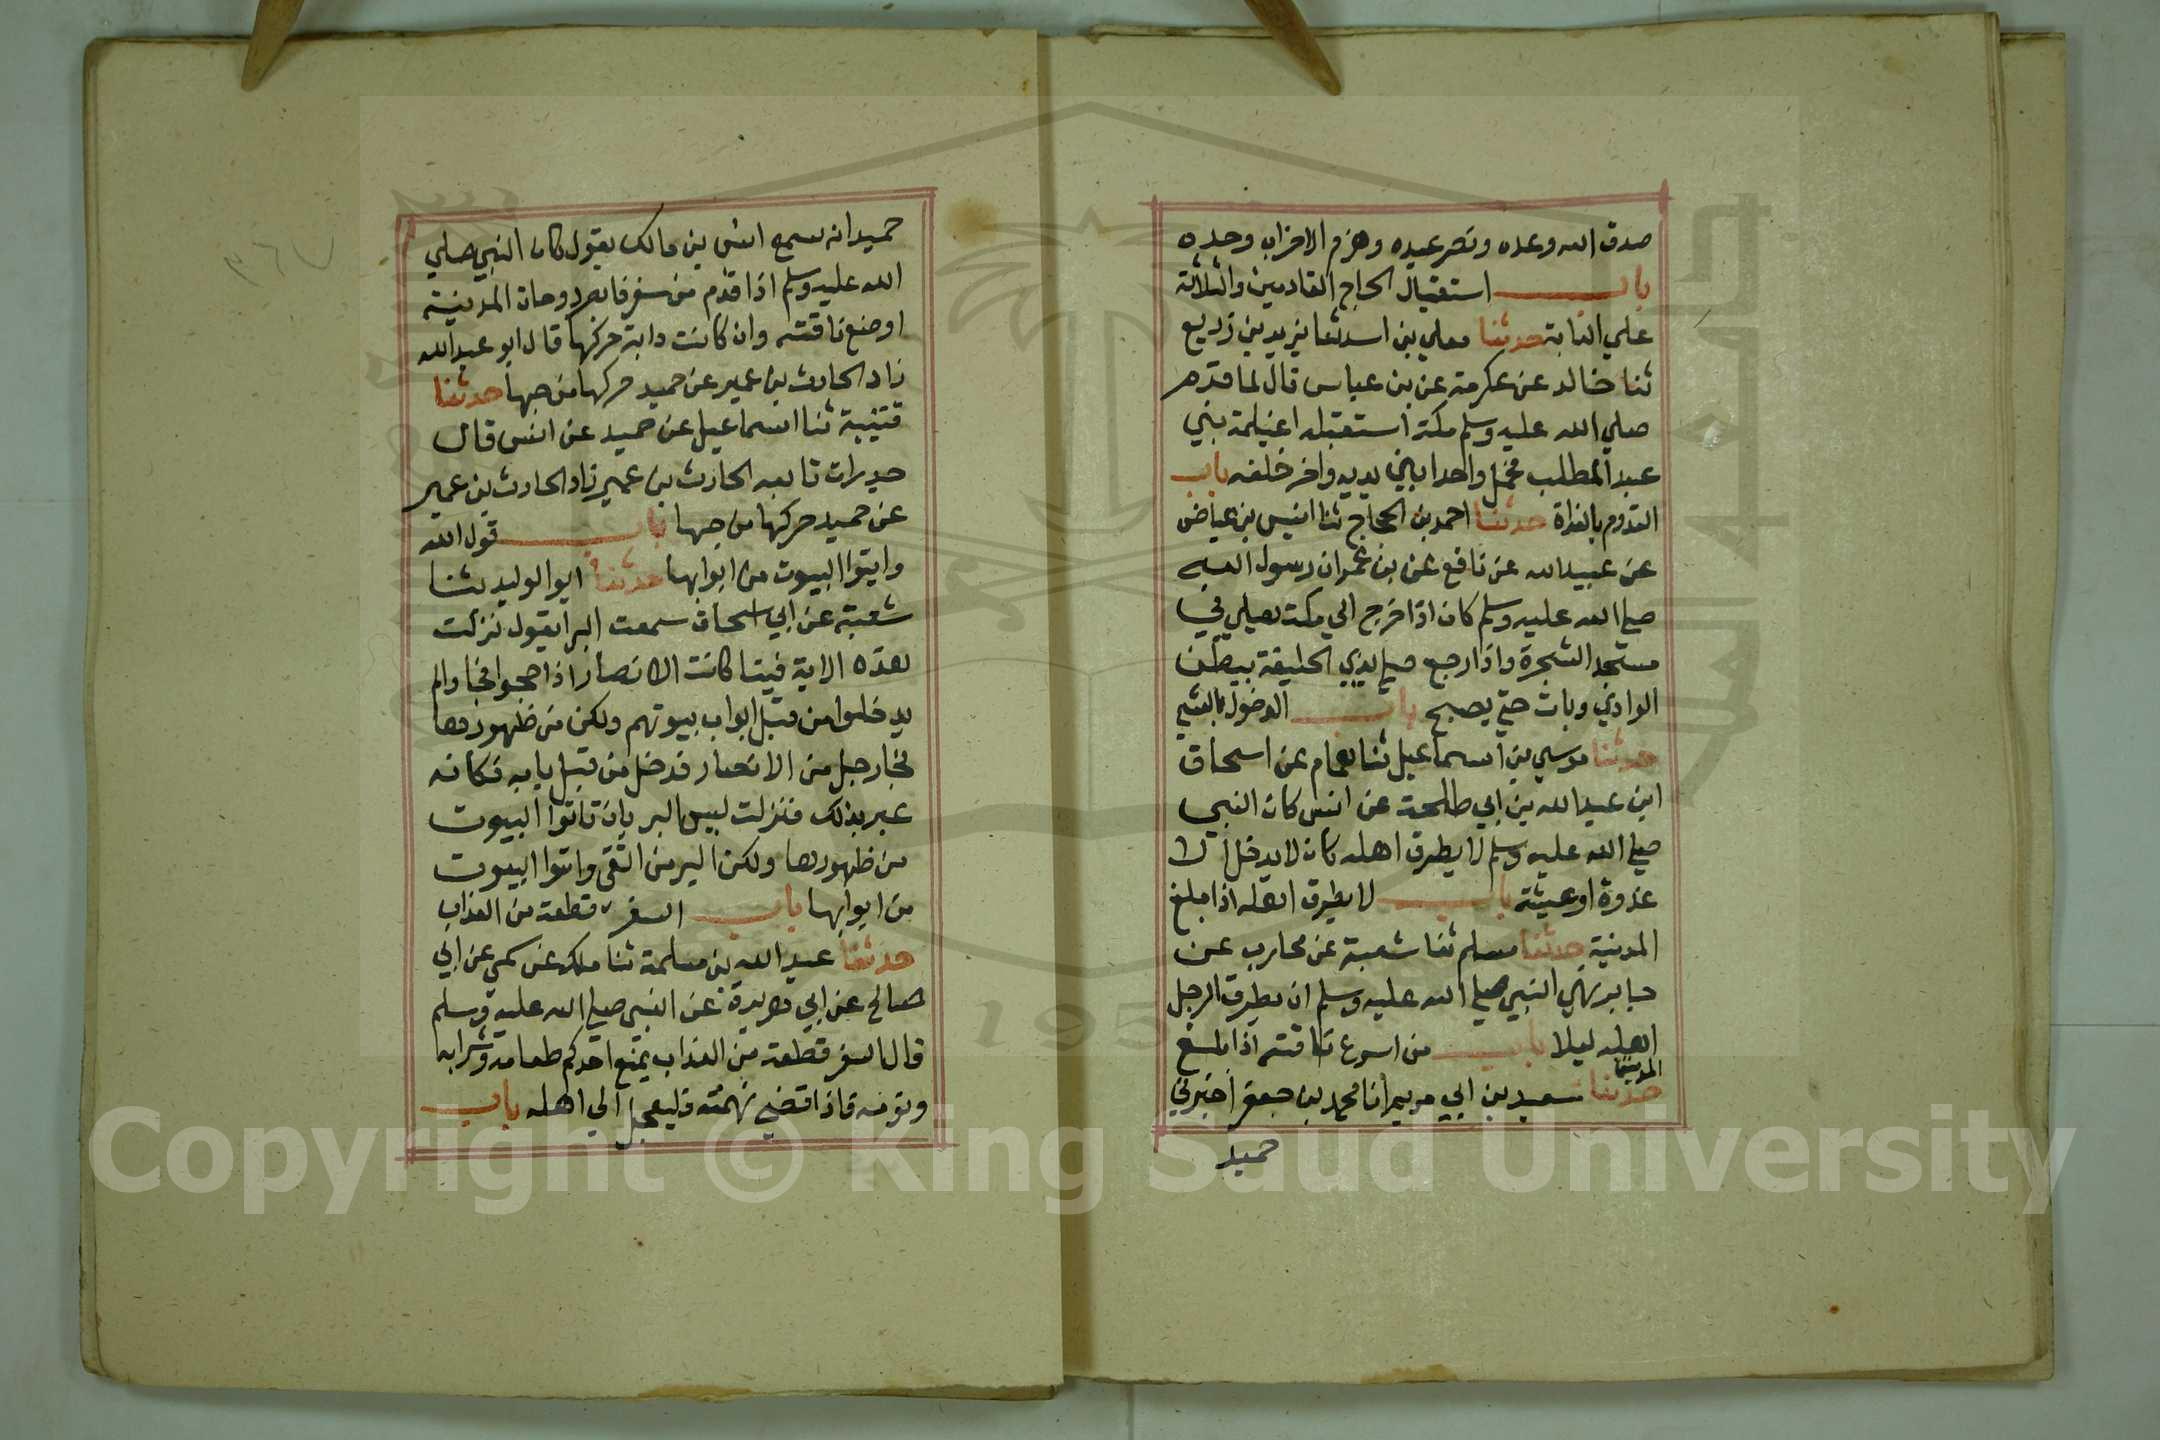 صدق الله وعده ونصر عبده وهزم الاحزاب وحده
باب استقبال الحاج القادمين والثلاثة
علي الدابة حدثنا معلي بن اسد ثنا يزيد بن زريع
ثنا خالد عن عكرمة عن بن عباس قال لما قدم
صلي الله عليه وسلم مكة استقبله اغيلمة بني
عبد المطلب فحمل واحدا بين يديه واخر خلفه باب
القدوم بالغداة حدثنا احمد بن الحجاج ثنا انيس بن عياض
عن عبيد الله عن نافع عن بن عمر ان رسول الله
صلي الله عليه وسلم كان اذا خرج الي مكة يصلي في
مسجد الشجرة واذا رجع صلي بذي الحليفة ببطن
الوادي وبات حتي يصبح باب الدخول بالعشي
حدثنا موسي بن اسماعيل ثنا همام عن اسحاق
ابن عبد الله بن ابي طلحة عن انس كان النبي
صلي الله عليه وسلم لا يطرق اهله كان لا يدخل الا
غدوة او عشية باب لا يطرق اهله اذا بلغ
المدينة حدثنا مسلم ثنا شعبة عن محارب عن
جابر نهي النبي صلي الله عليه وسلم ان يطرق الرجل
اهله ليلا باب من اسرع ناقته اذا بلغ
المدينة
حدثنا سعيد بن ابي مريم انا محمد بن جعفر اخبرني
حميد
٣٦٧
حميد انه سمع انس بن مالك يقول كان النبي صلي
الله عليه وسلم اذا قدم من سفر فابصر دوحات المدينة
اوضع ناقته وان كانت دابة حركها قال ابو عبد الله
زاد الحارث بن عمير عن حميد حركها من حبها حدثنا
قتيبة ثنا اسماعيل عن حميد عن انس قال
جدرات تابعه الحارث بن عمير زاد الحارث بن عمير
عن حميد حركها من حبها باب قول الله
وايتوا البيوت من ابوابها حدثنا ابو الوليد ثنا
شعبة عن ابي اسحاق سمعت البرا يقول نزلت
هذه الاية فينا كانت الانصار اذا حجوا فجاوا لم
يدخلوا من قبل ابواب بيوتهم ولكن من ظهورها
فجا رجل من الانصار فدخل من قبل بابه فكانه
عير بذلك فنزلت ليس البر بان تاتوا البيوت
من ظهورها ولكن البر من اتقي واتوا البيوت
من ابوابها باب السفر قطعة من العذاب
حدثنا عبد الله بن مسلمة ثنا ملك عن سمي عن ابي
صالح عن ابي هريرة عن النبي صلي الله عليه وسلم
قال السفر قطعة من العذاب يمنع احدكم طعامه وشرابه
ونومه فاذا قضي نهمته فليعجل الي اهله باب
Copyright © King Saud University
195